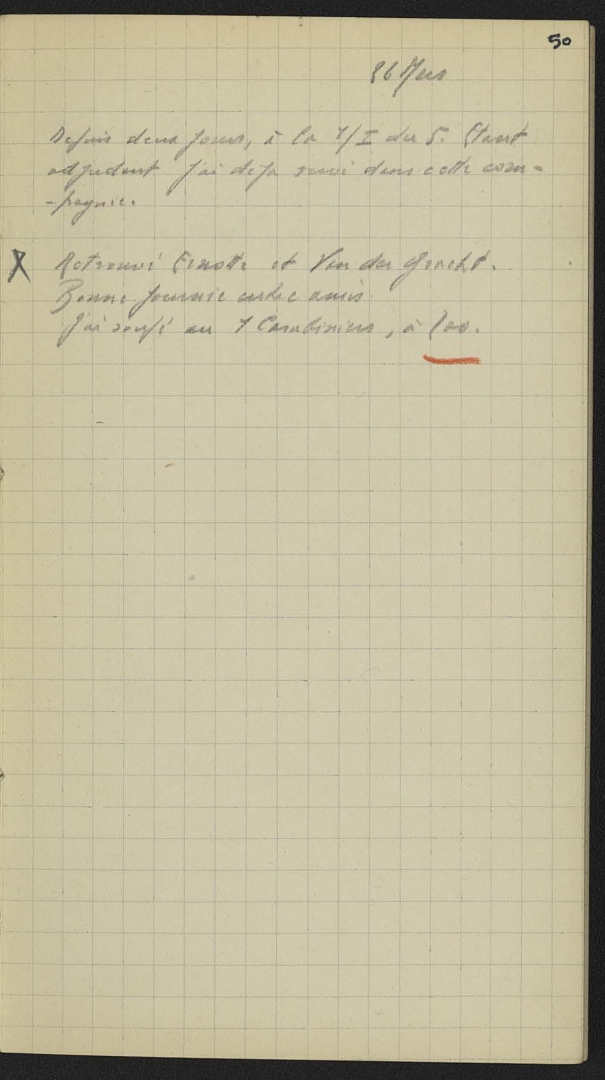 50
26 Mars
Depuis deux jours, à la 7/I du 5. Etant
adjudant j'ai déjà servi dans cette com-
-pagnie.
X Retrouvé et Van der Gracht.
Bonne journée entre amis
J'ai soupé au 1 Carabiniers, à